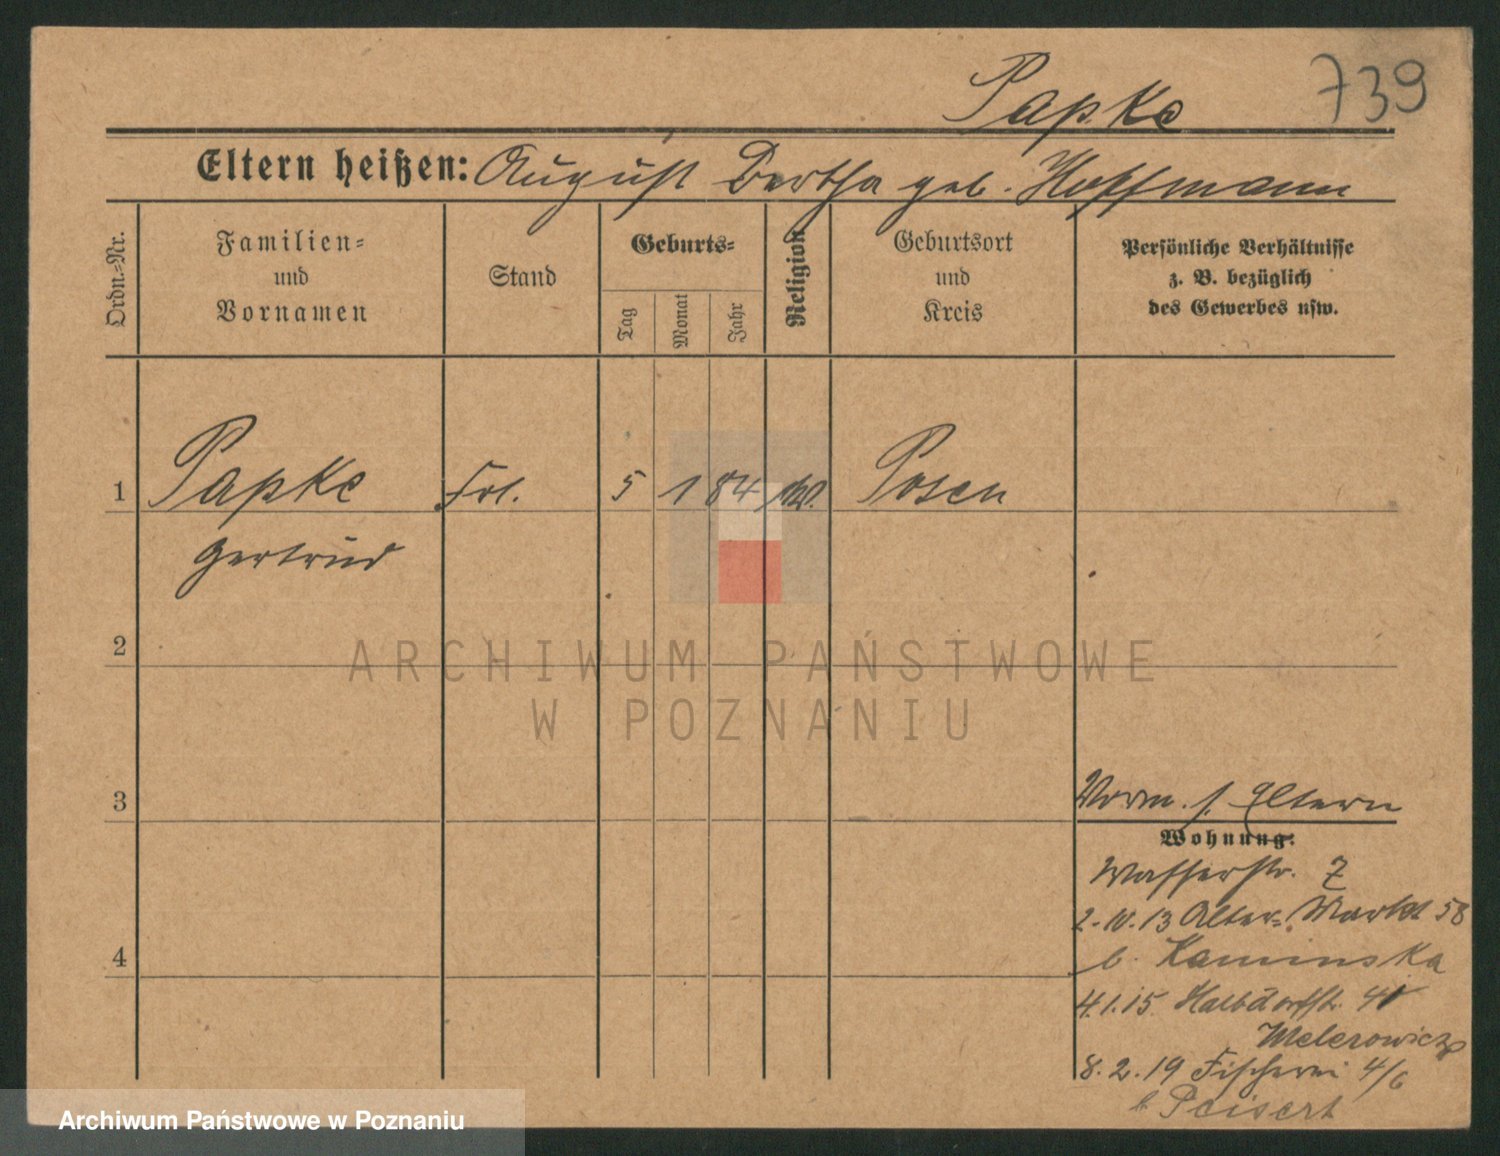 Papke 739
Eltern heißen: August Bertha geb. Hoffmann
Ordn.-Nr.
Familien-
und
Vornamen
Stand
Geburts-
Tag
Monat
Jahr
Religion
Geburtsort
und
Kreis
Persönliche Verhältnisse
z. B. bezüglich
des Gewerbes usw.
1 Papke Frl. 5 1 84 Posen
Gertrud
2
ARCHIWUM PAŃSTWOWE
W POZNANIU
3
Vorm. s. Eltern
Wohnung:
Wasserstr. 7
2.10.13 Alter Markt 58
b. Kaminska
4
4.1.15 Halbdorfstr.
8.2.19 Fischerei 4/6
b Peisert
Archiwum Państwowe w Poznaniu